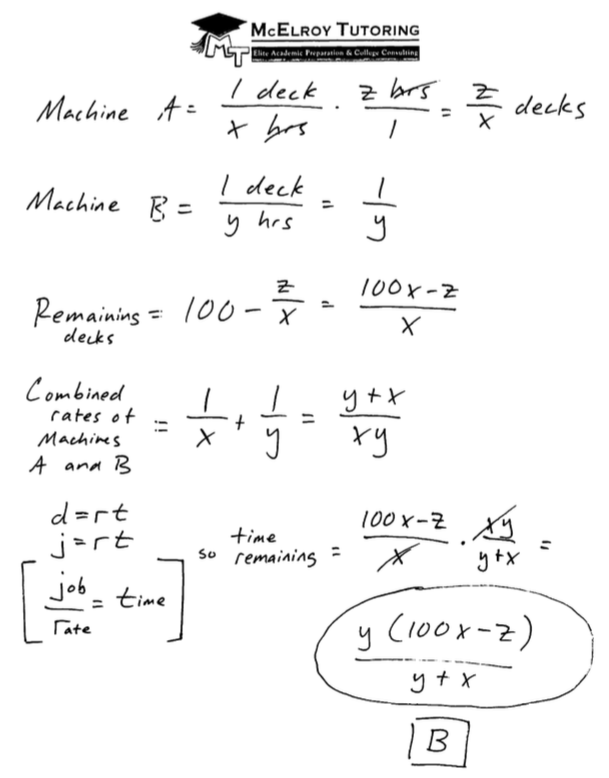 McElroy Tutoring
MT
Elite Academic Preparation & College Consulting
Machine A = 1 deck / x hrs · z hrs / 1 = z/x decks
Machine B = 1 deck / y hrs = 1/y
Remaining decks = 100 - z/x = 100x-z / x
Combined rates of Machines A and B := 1/x + 1/y = y+x / xy
d=rt
j=rt
[job / rate = time] so time remaining = 100x-z / x · xy / y+x =
y(100x-z) / y+x
B